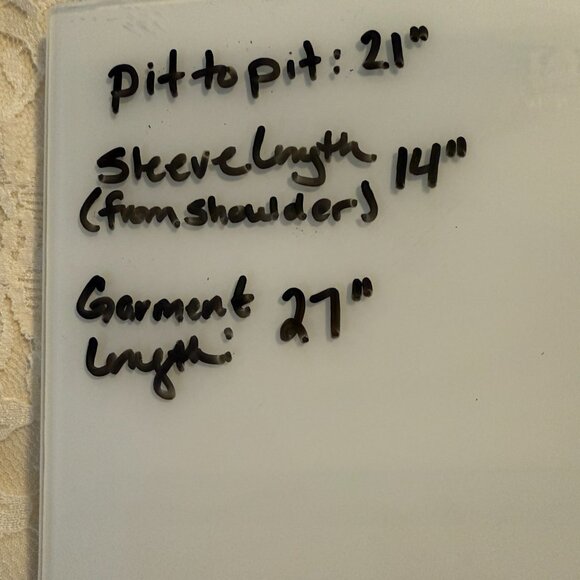 Pit to pit: 21"
Sleeve length 14"
(from shoulder)
Garment 27"
length: